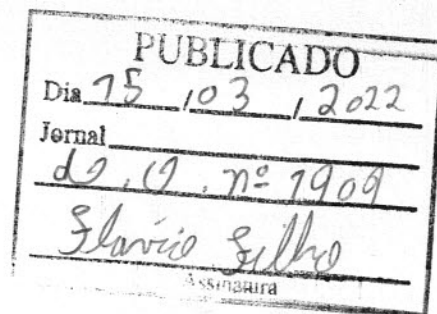 PUBLICADO
Dia 15 / 03 / 2022
Jornal
d.O. nº 1909
Flavio Filho
Assinatura